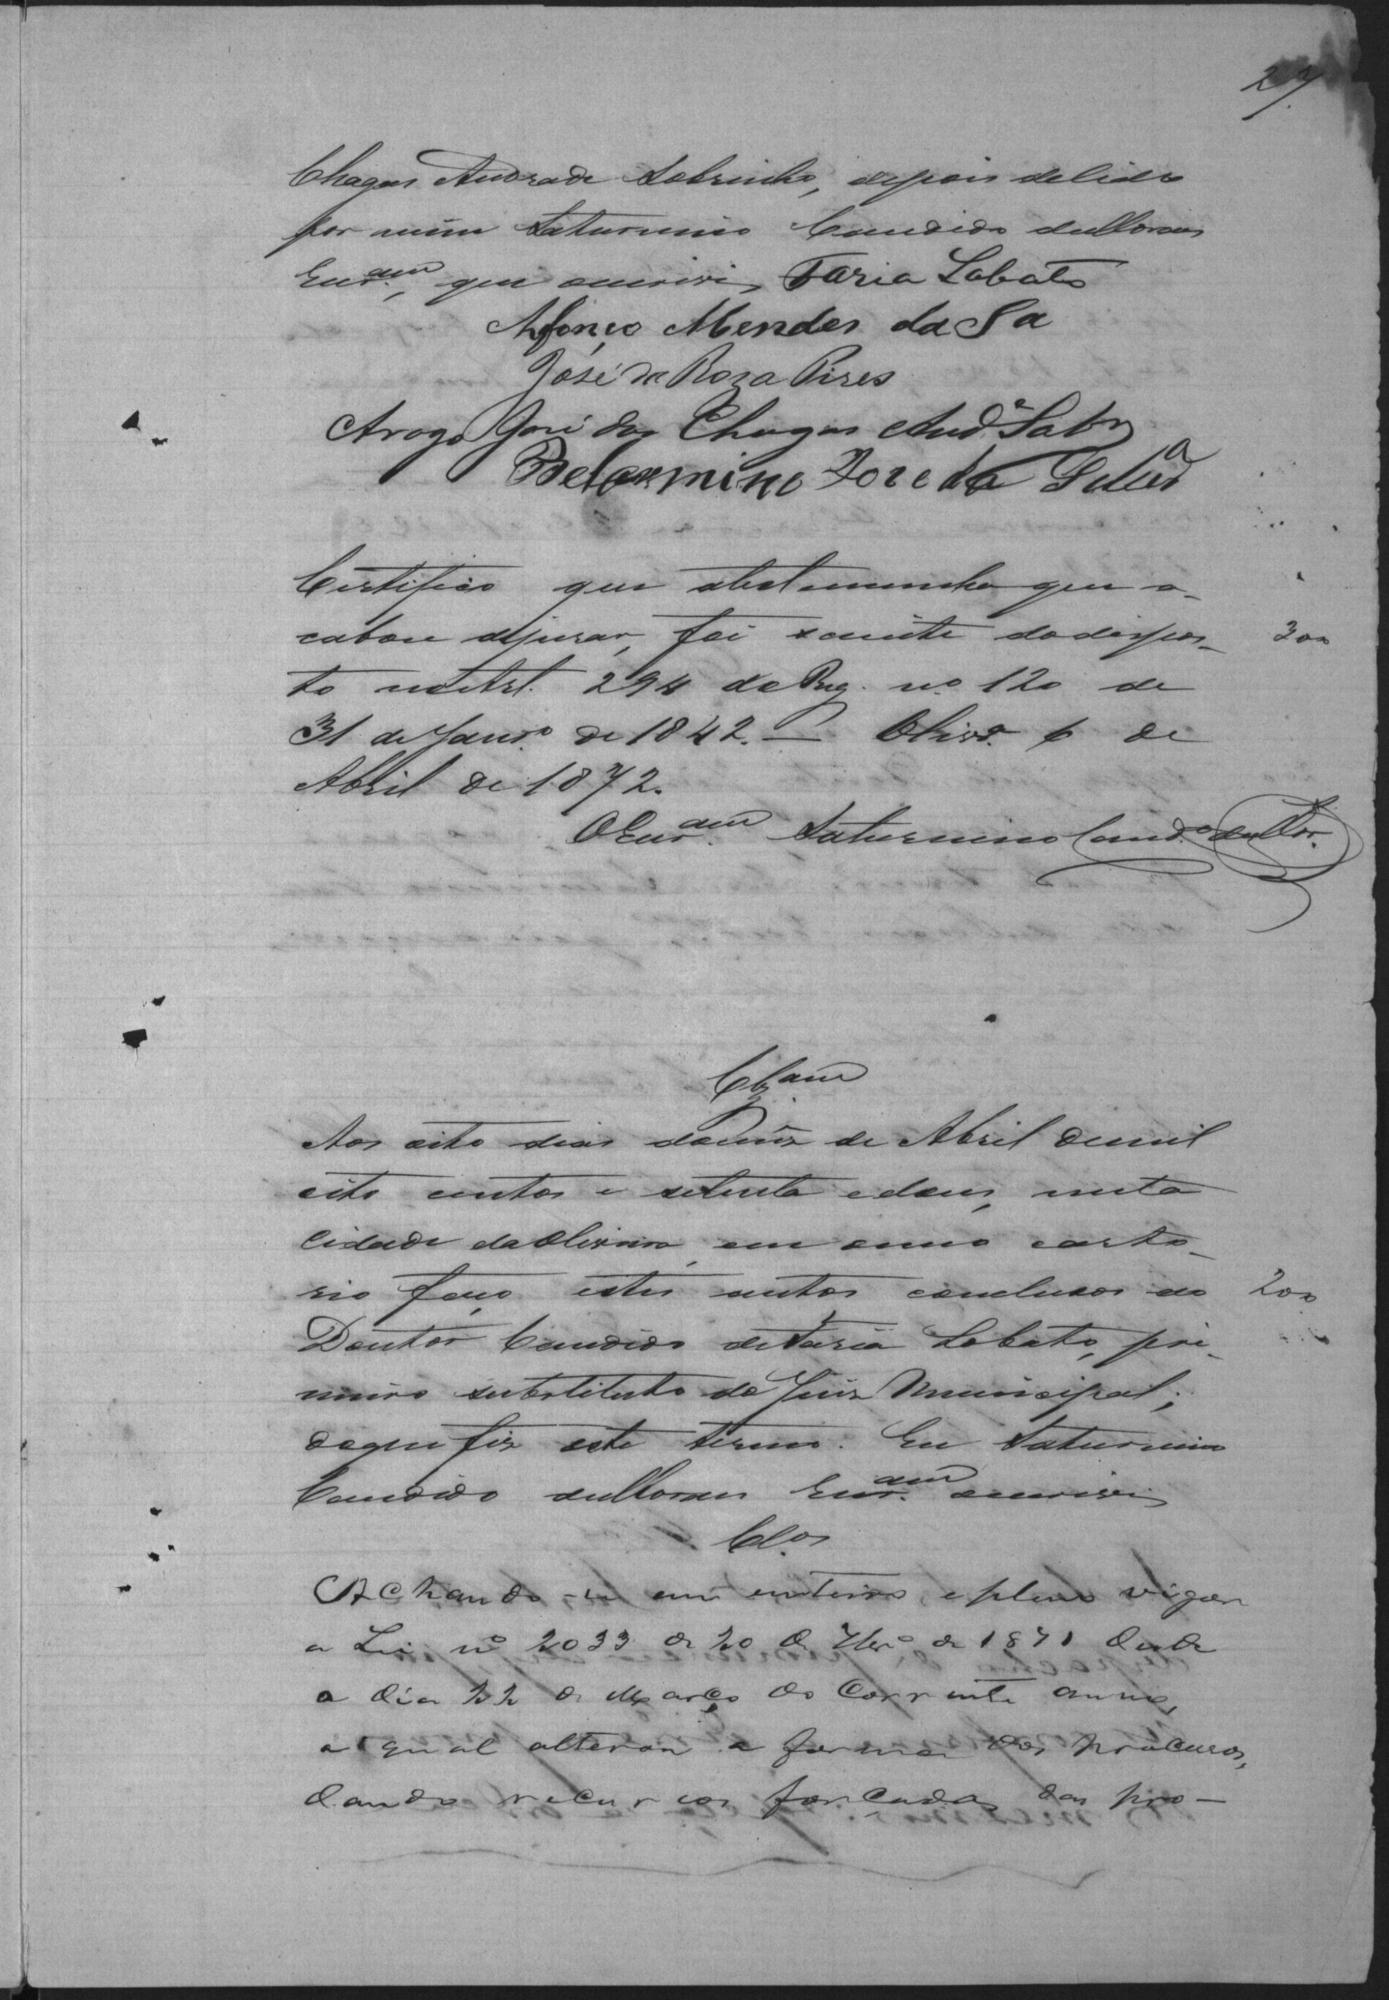 27
Chagas Andrade Sobrinho, depois delido
por mim Saturnino Candido de Moraes
Escr.am, que escrevi, Faria Lobato
Afonço Mendes da Sa
José da Roza Pires
Arogo José das Chagas And.e Sobr
Belarmino Jose da
Certifico que atestemunha que a-
cabou dejurar, foi sciente dodispos-
to noArt. 294 do Reg. nº 120 de
300
31 de Janr.o de 1842. — Olivr.a 6 de
Abril de 1872.
OEscr.am Saturnino Cand.o de Mor.
Clz.am
Aos oito dias domez de Abril demil
oito centos e setenta edous, nesta
Cidade da Oliveira, em meo carto-
rio faço estes autos conclusos ao
200
Doutor Candido deFaria Lobato, pri-
meiro substituto do Juiz Municipal;
doque fiz este termo. Eu Saturnino
Candido de Moraes Escr.am escrevi
Cl.os
Achando-se em inteiro, e pleno vigor
a Lei nº 2033 de 20 de 7br.o de 1871 desde
o dia 22 de Março do corrente anno,
a qual alterou a forma dos processos,
dando recursos forçados das pro-